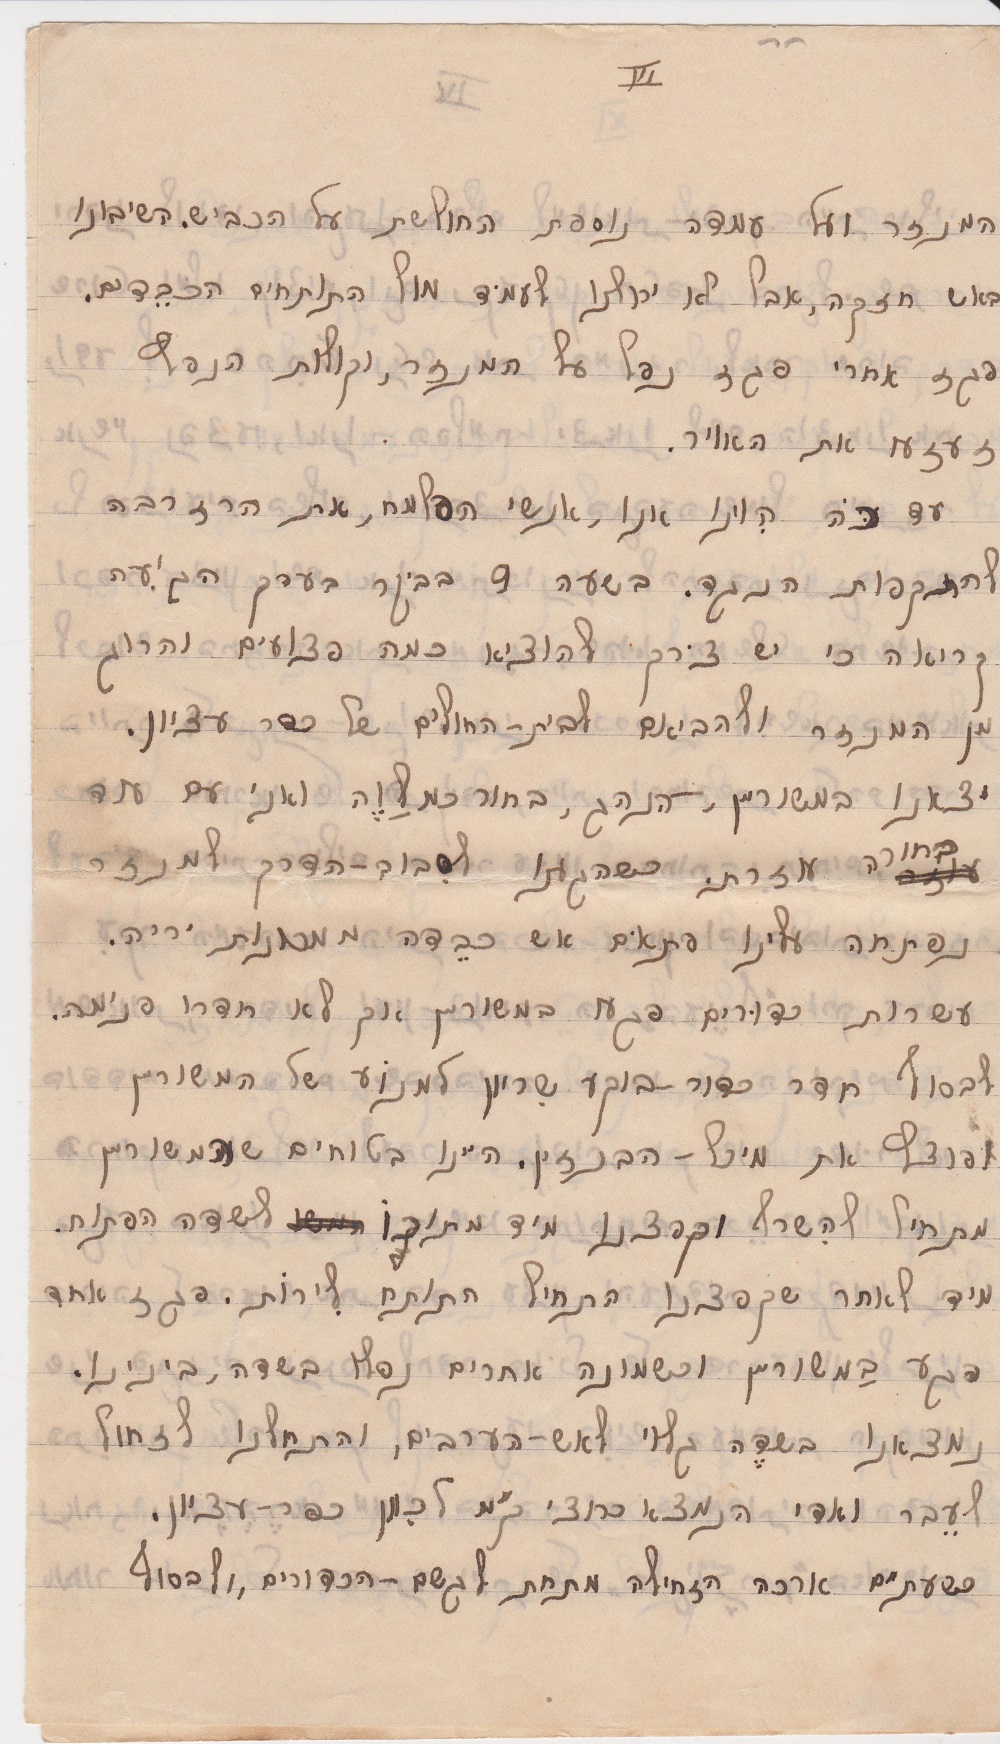 VI
המנזר ועל עמדה נוספת החולשת על הכביש. השיבונו
באש חזקה, אבל לא יכולנו לעמד מול התותחים הכבֵדים.
פגז אחרי פגז נפל על המנזר, וקולות הנפץ
זעזעו את האויר.
עד כֹּה הָוינו אנו, אנשי הפלמח, את הרזרבה
להתקפות הנגד. בשעה 9 בבקר בערך הגִיעה
קריאה כי יש צֹרך להוציא כמה פצועים והרוג
מן המנזר ולהביאם לבית-החולים של כפר עציון.
יצאנו במשורין, הנהג, בחור כמלַוֶה ואני עם עוד
בחורה עוזרת. כשהגענו לסבוב-הדרך למנזר
נפתחה עלינו פתאֹם אש כבֵדה ממכונות יריה.
עשרות כדוּרים פגעו במשורין אך לא חדרו פנימה.
לבסוף חדר כדור-בוקע שִריון למנוֹע של המשורין
ופוצץ את מיכל-הבנזין. היינו בטוחים שהמשורין
מתחיל להִשרף וקפצנו מיד מתוכוֹ לשדה הפתוח.
מיד לאחר שקפצנו התחיל התותח לִירוֹת. פגז אחד
פגע בַמשורין וכשמונה אחרים נפלו בשדה, בינינו.
נמצאנו בשדֶה גלוי לאש-הערבים, והתחלנו לזחול
לעֵבר ואדי הנמצא כחצי ק"מ לכִוּון כפר-עֶצִיון.
כשעתים ארכה הזחילה מתחת לגשם-הכדורים, ולבסוף